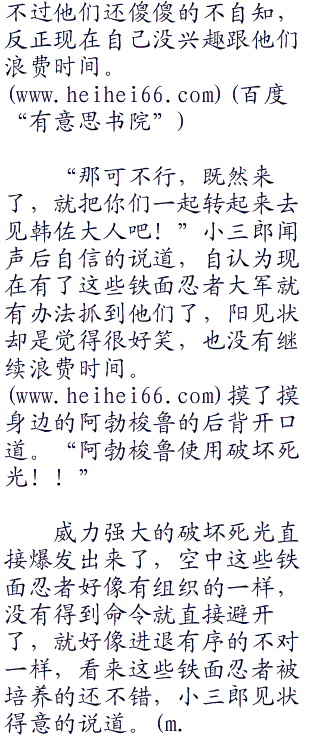 不过他们还傻傻的不自知，
反正现在自己没兴趣跟他们
浪费时间。
(www.heihei66.com)(百度
“有意思书院”)
“那可不行，既然来
了，就把你们一起转起来去
见韩佐大人吧！”小三郎闻
声后自信的说道，自认为现
在有了这些铁面忍者大军就
有办法抓到他们了，阳见状
却是觉得很好笑，也没有继
续浪费时间。
(www.heihei66.com)摸了摸
身边的阿勃梭鲁的后背开口
道。“阿勃梭鲁使用破坏死
光！！”
威力强大的破坏死光直
接爆发出来了，空中这些铁
面忍者好像有组织的一样，
没有得到命令就直接避开
了，就好像进退有序的不对
一样，看来这些铁面忍者被
培养的还不错，小三郎见状
得意的说道。(m.